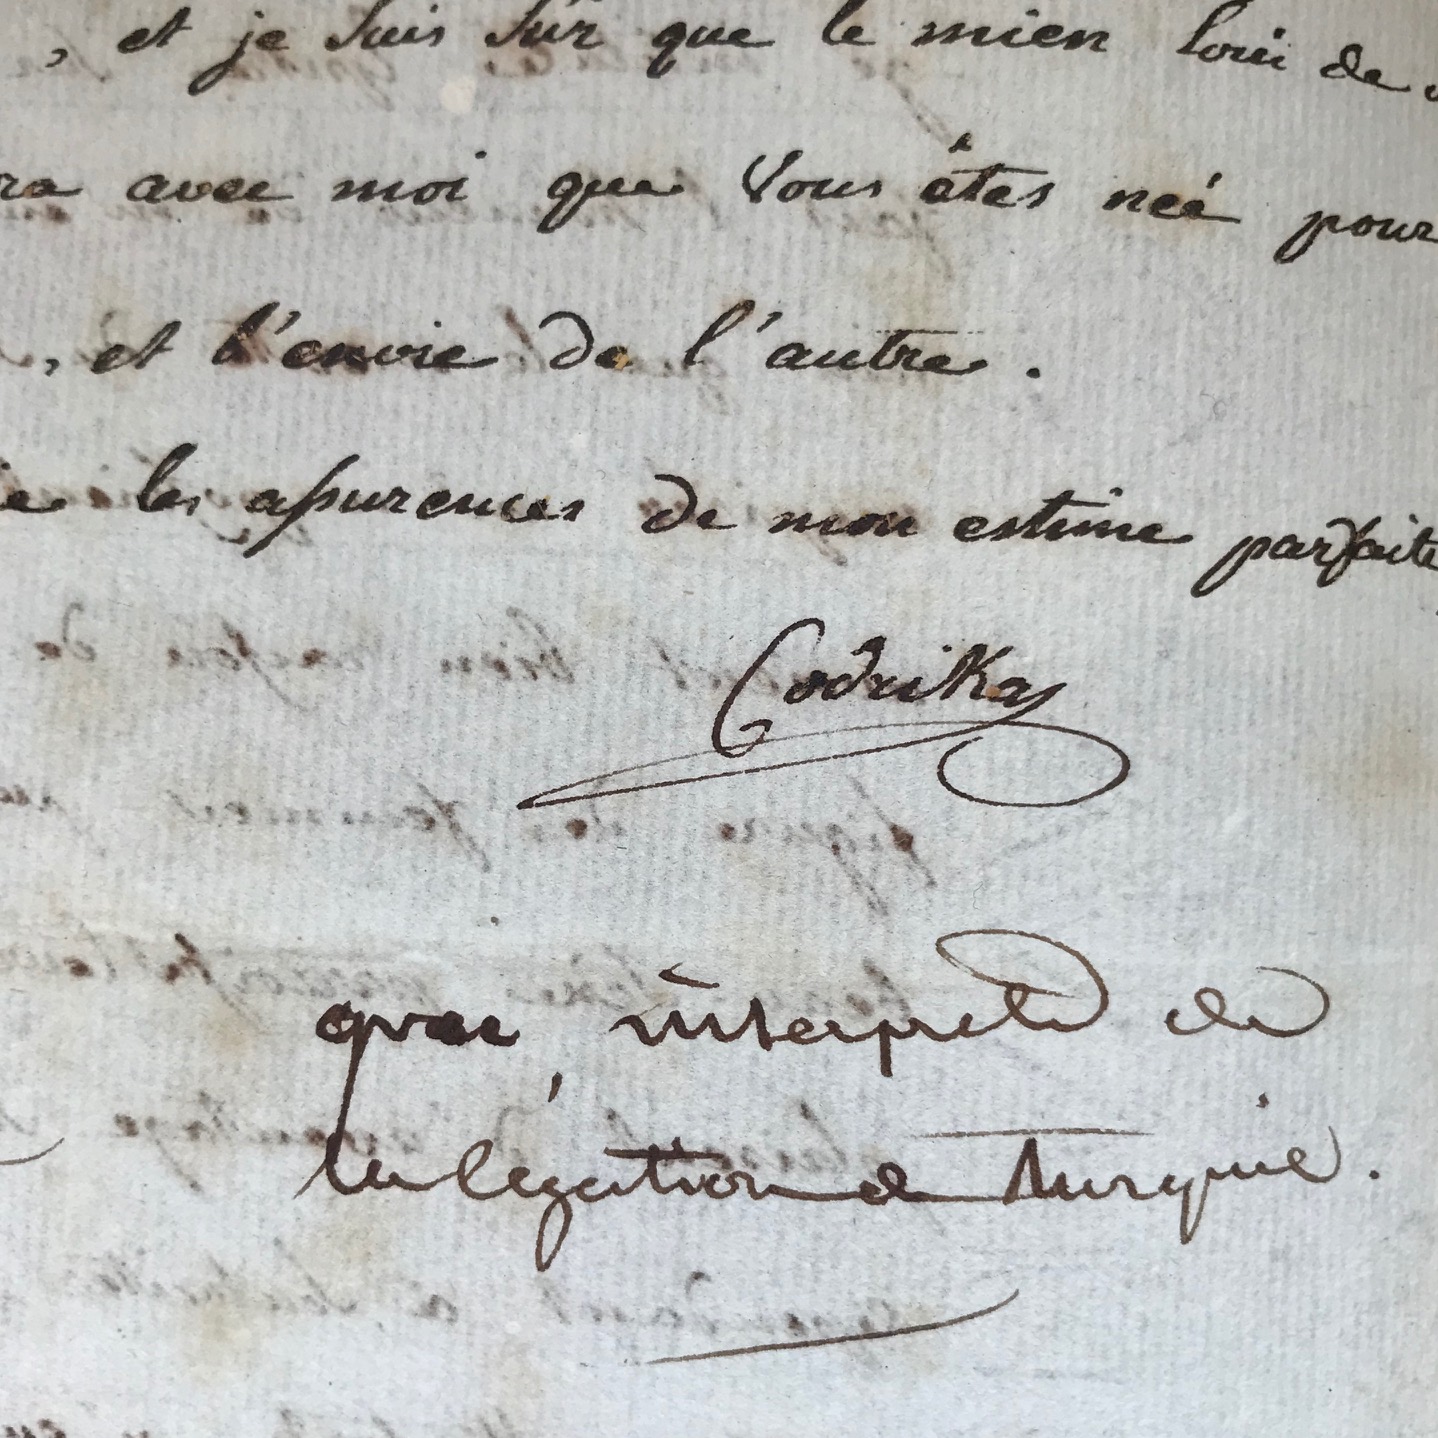 , et je suis sûr que le mien loin de
ra avec moi que Vous êtes neé pour
, et l'envie de l'autre.
les de mon estime parfaite
Codrikas
interprete de
la légation de Turquie.